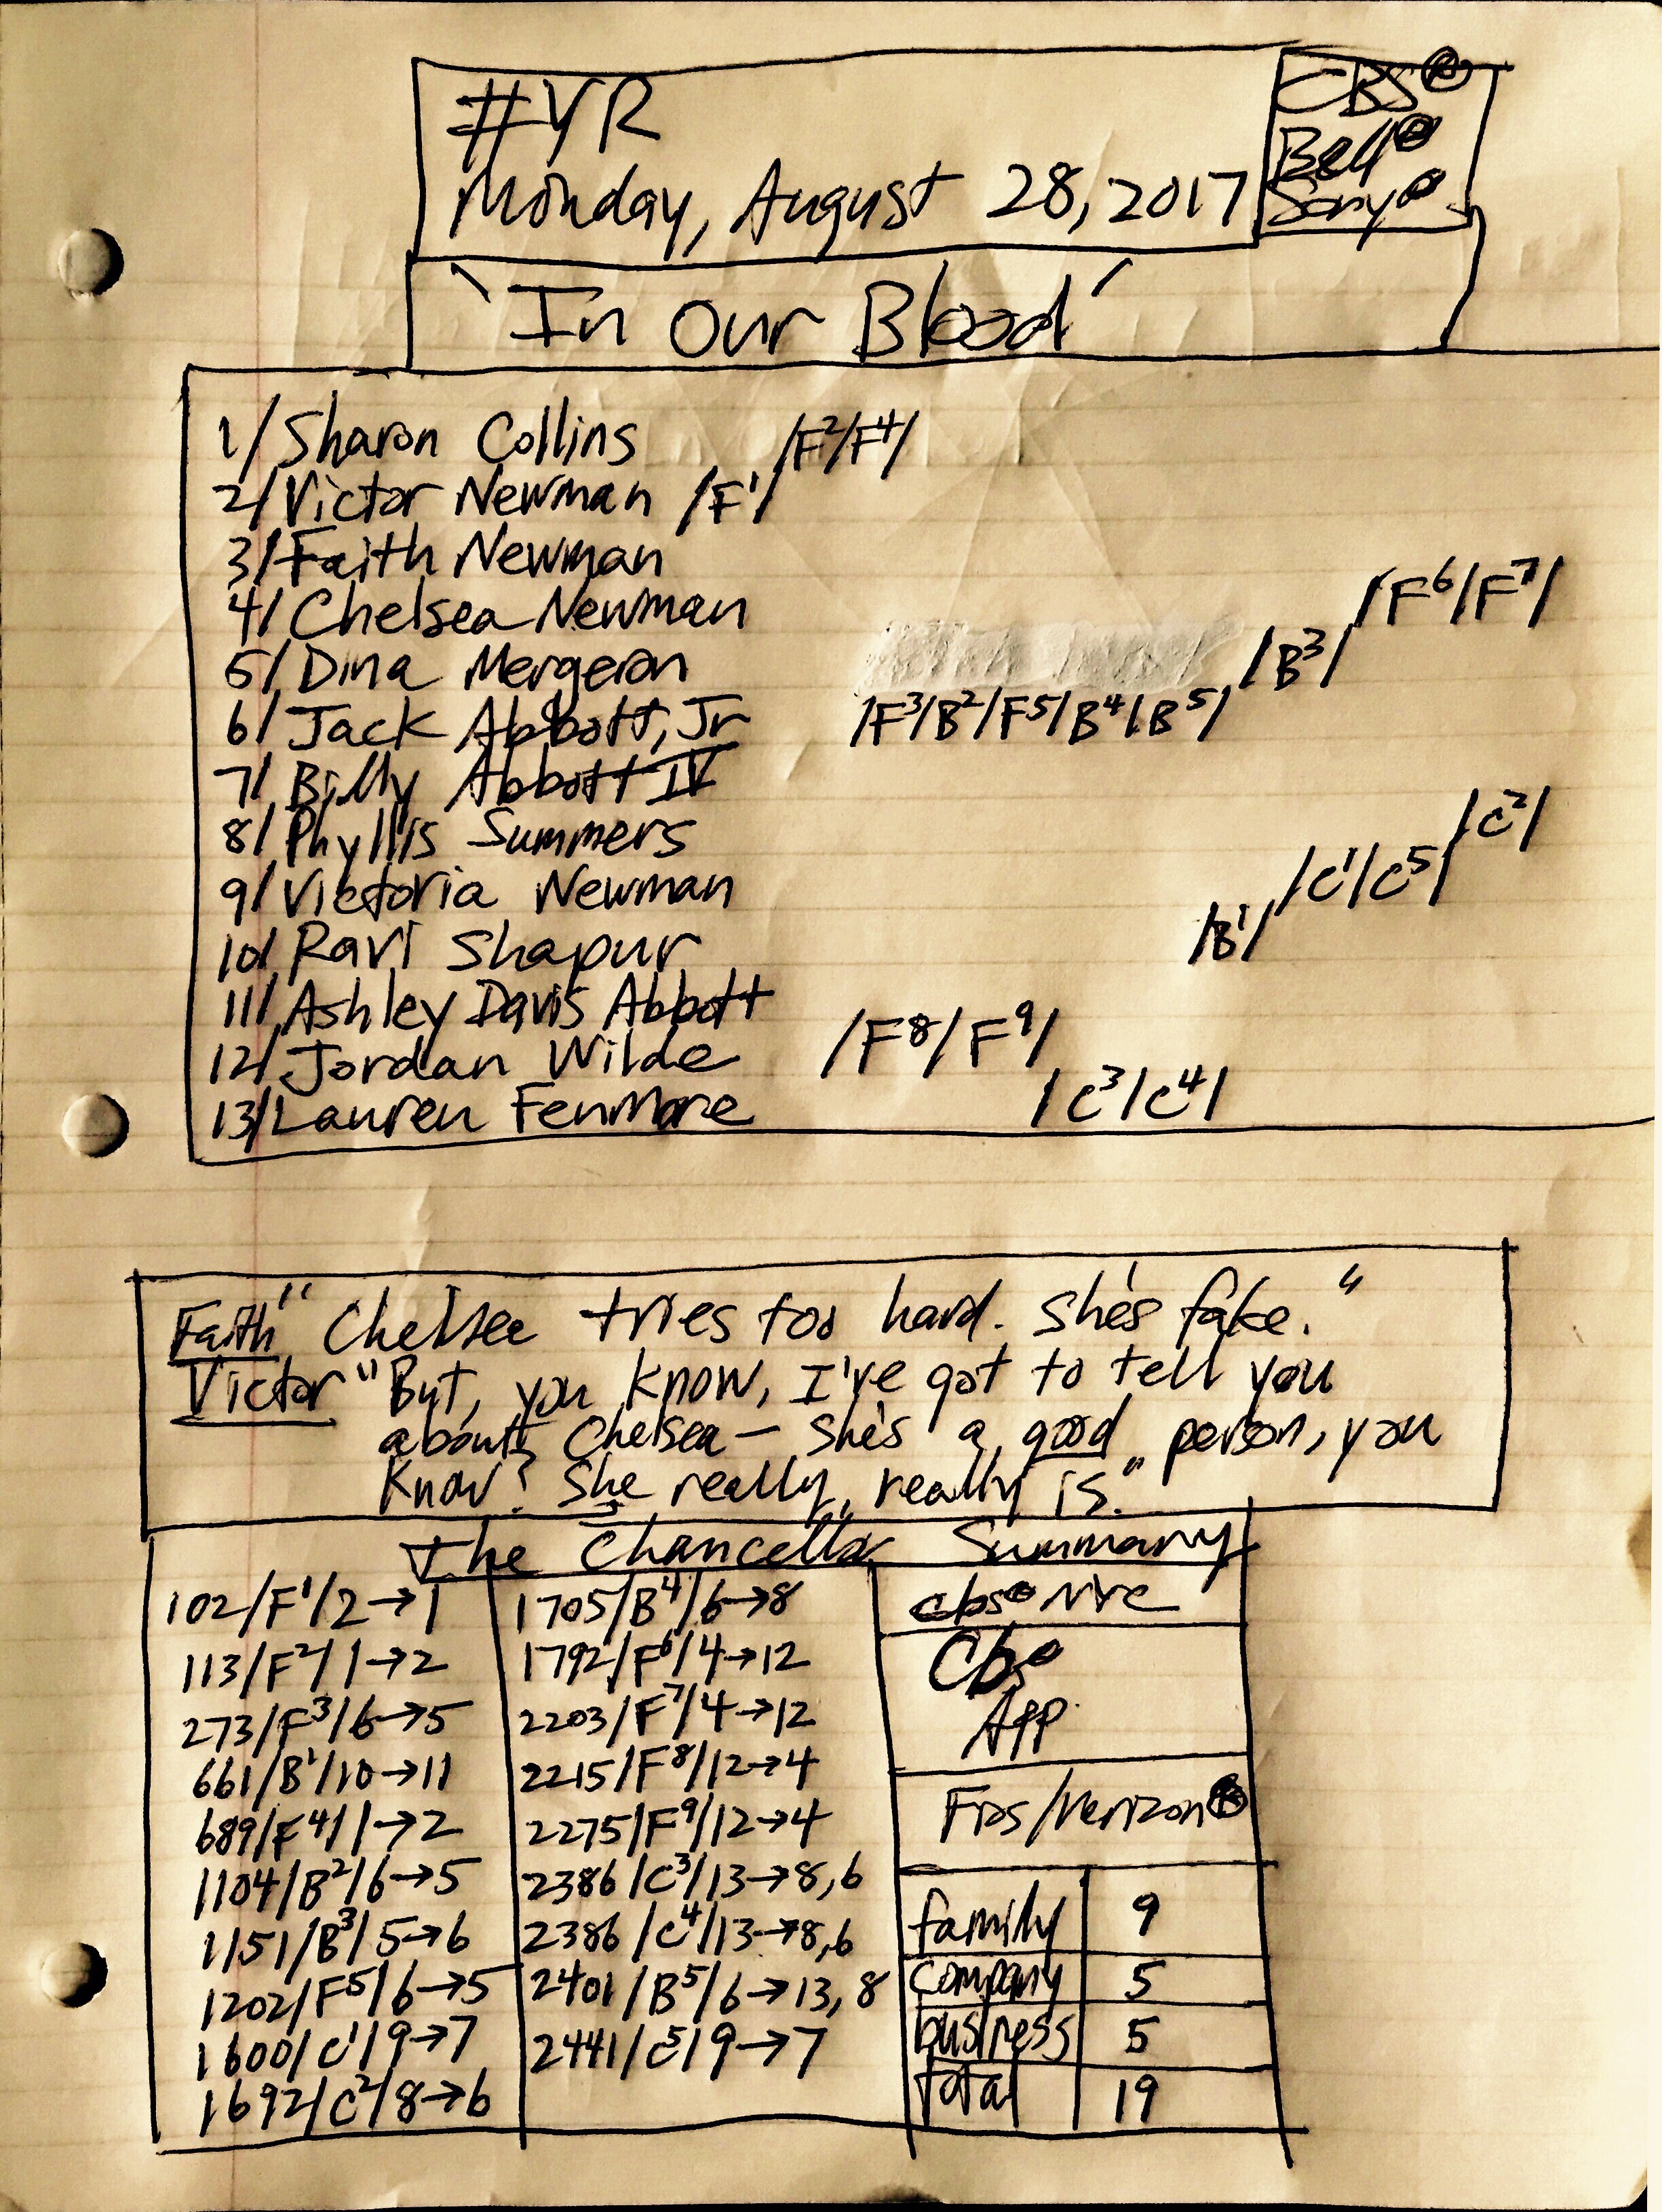 #YR
Monday, August 28, 2017
CBS®
Bell®
Sony®
'In Our Blood'
1/ Sharon Collins /F²/F⁴/
2/ Victor Newman /F¹/
3/ Faith Newman
4/ Chelsea Newman /F⁶/F⁷/
5/ Dina Mergeron /B³/
6/ Jack Abbott, Jr /F³/B²/F⁵/B⁴/B⁵/
7/ Billy Abbott IV
8/ Phyllis Summers /C²/
9/ Victoria Newman /C¹/C⁵/
10/ Ravi Shapur /B¹/
11/ Ashley Davis Abbott
12/ Jordan Wilde /F⁸/F⁹/
13/ Lauren Fenmore /C³/C⁴/
Faith "Chelsea tries too hard. She's fake."
Victor "But, you know, I've got to tell you
about Chelsea — she's a good person, you
know? She really, really is."
The Chancellor Summary
102/F¹/2→1
113/F²/1→2
273/F³/6→5
661/B¹/10→11
689/F⁴/1→2
1104/B²/6→5
1151/B³/5→6
1202/F⁵/6→5
1600/C¹/9→7
1692/C²/8→6
1705/B⁴/6→8
1792/F⁶/4→12
2203/F⁷/4→12
2215/F⁸/12→4
2275/F⁹/12→4
2386/C³/13→8,6
2386/C⁴/13→8,6
2401/B⁵/6→13,8
2441/C⁵/9→7
cbs® NYC
Cbs®
App
Fios/Verizon®
family 9
company 5
business 5
total 19